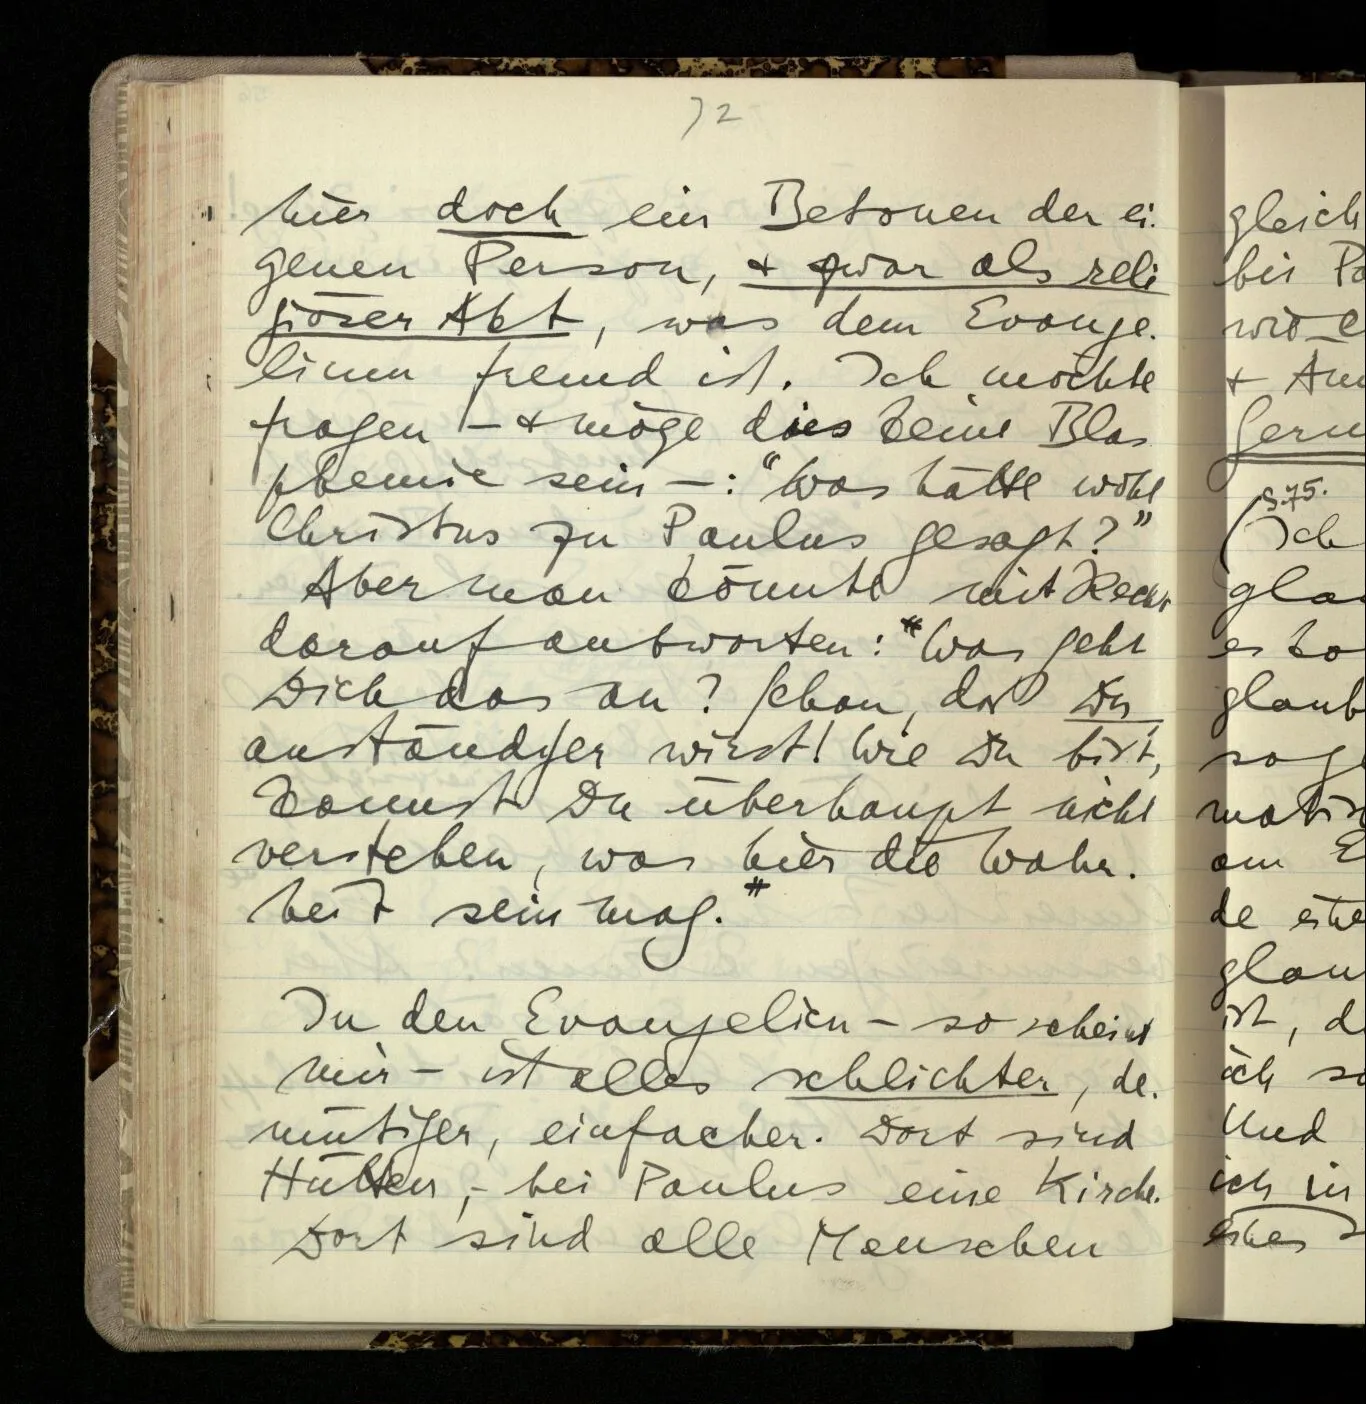 72
hier doch ein Betonen der ei-
genen Person, + zwar als reli
giöser Akt, was dem Evange-
lium fremd ist. Ich möchte
fragen – + möge dies keine Blas
phemie sein –: "Was hätte wohl
Christus zu Paulus gesagt?"
Aber man könnte mit Recht
darauf antworten: "Was geht
Dich das an? Schau, daß Du
anständiger wirst! Wie Du bist,
kannst Du überhaupt nicht
verstehen, was hier die Wahr-
heit sein mag."
In den Evangelien – so scheint
mir – ist alles schlichter, de-
mütiger, einfacher. Dort sind
Hütten, – bei Paulus eine Kirche.
Dort sind alle Menschen
gleich
bei Pa
wie
+ Am
S. 75.
(Ich
gla
es
glaub
sag
am E
de
glau
ist, d
ich so
Und
ich in